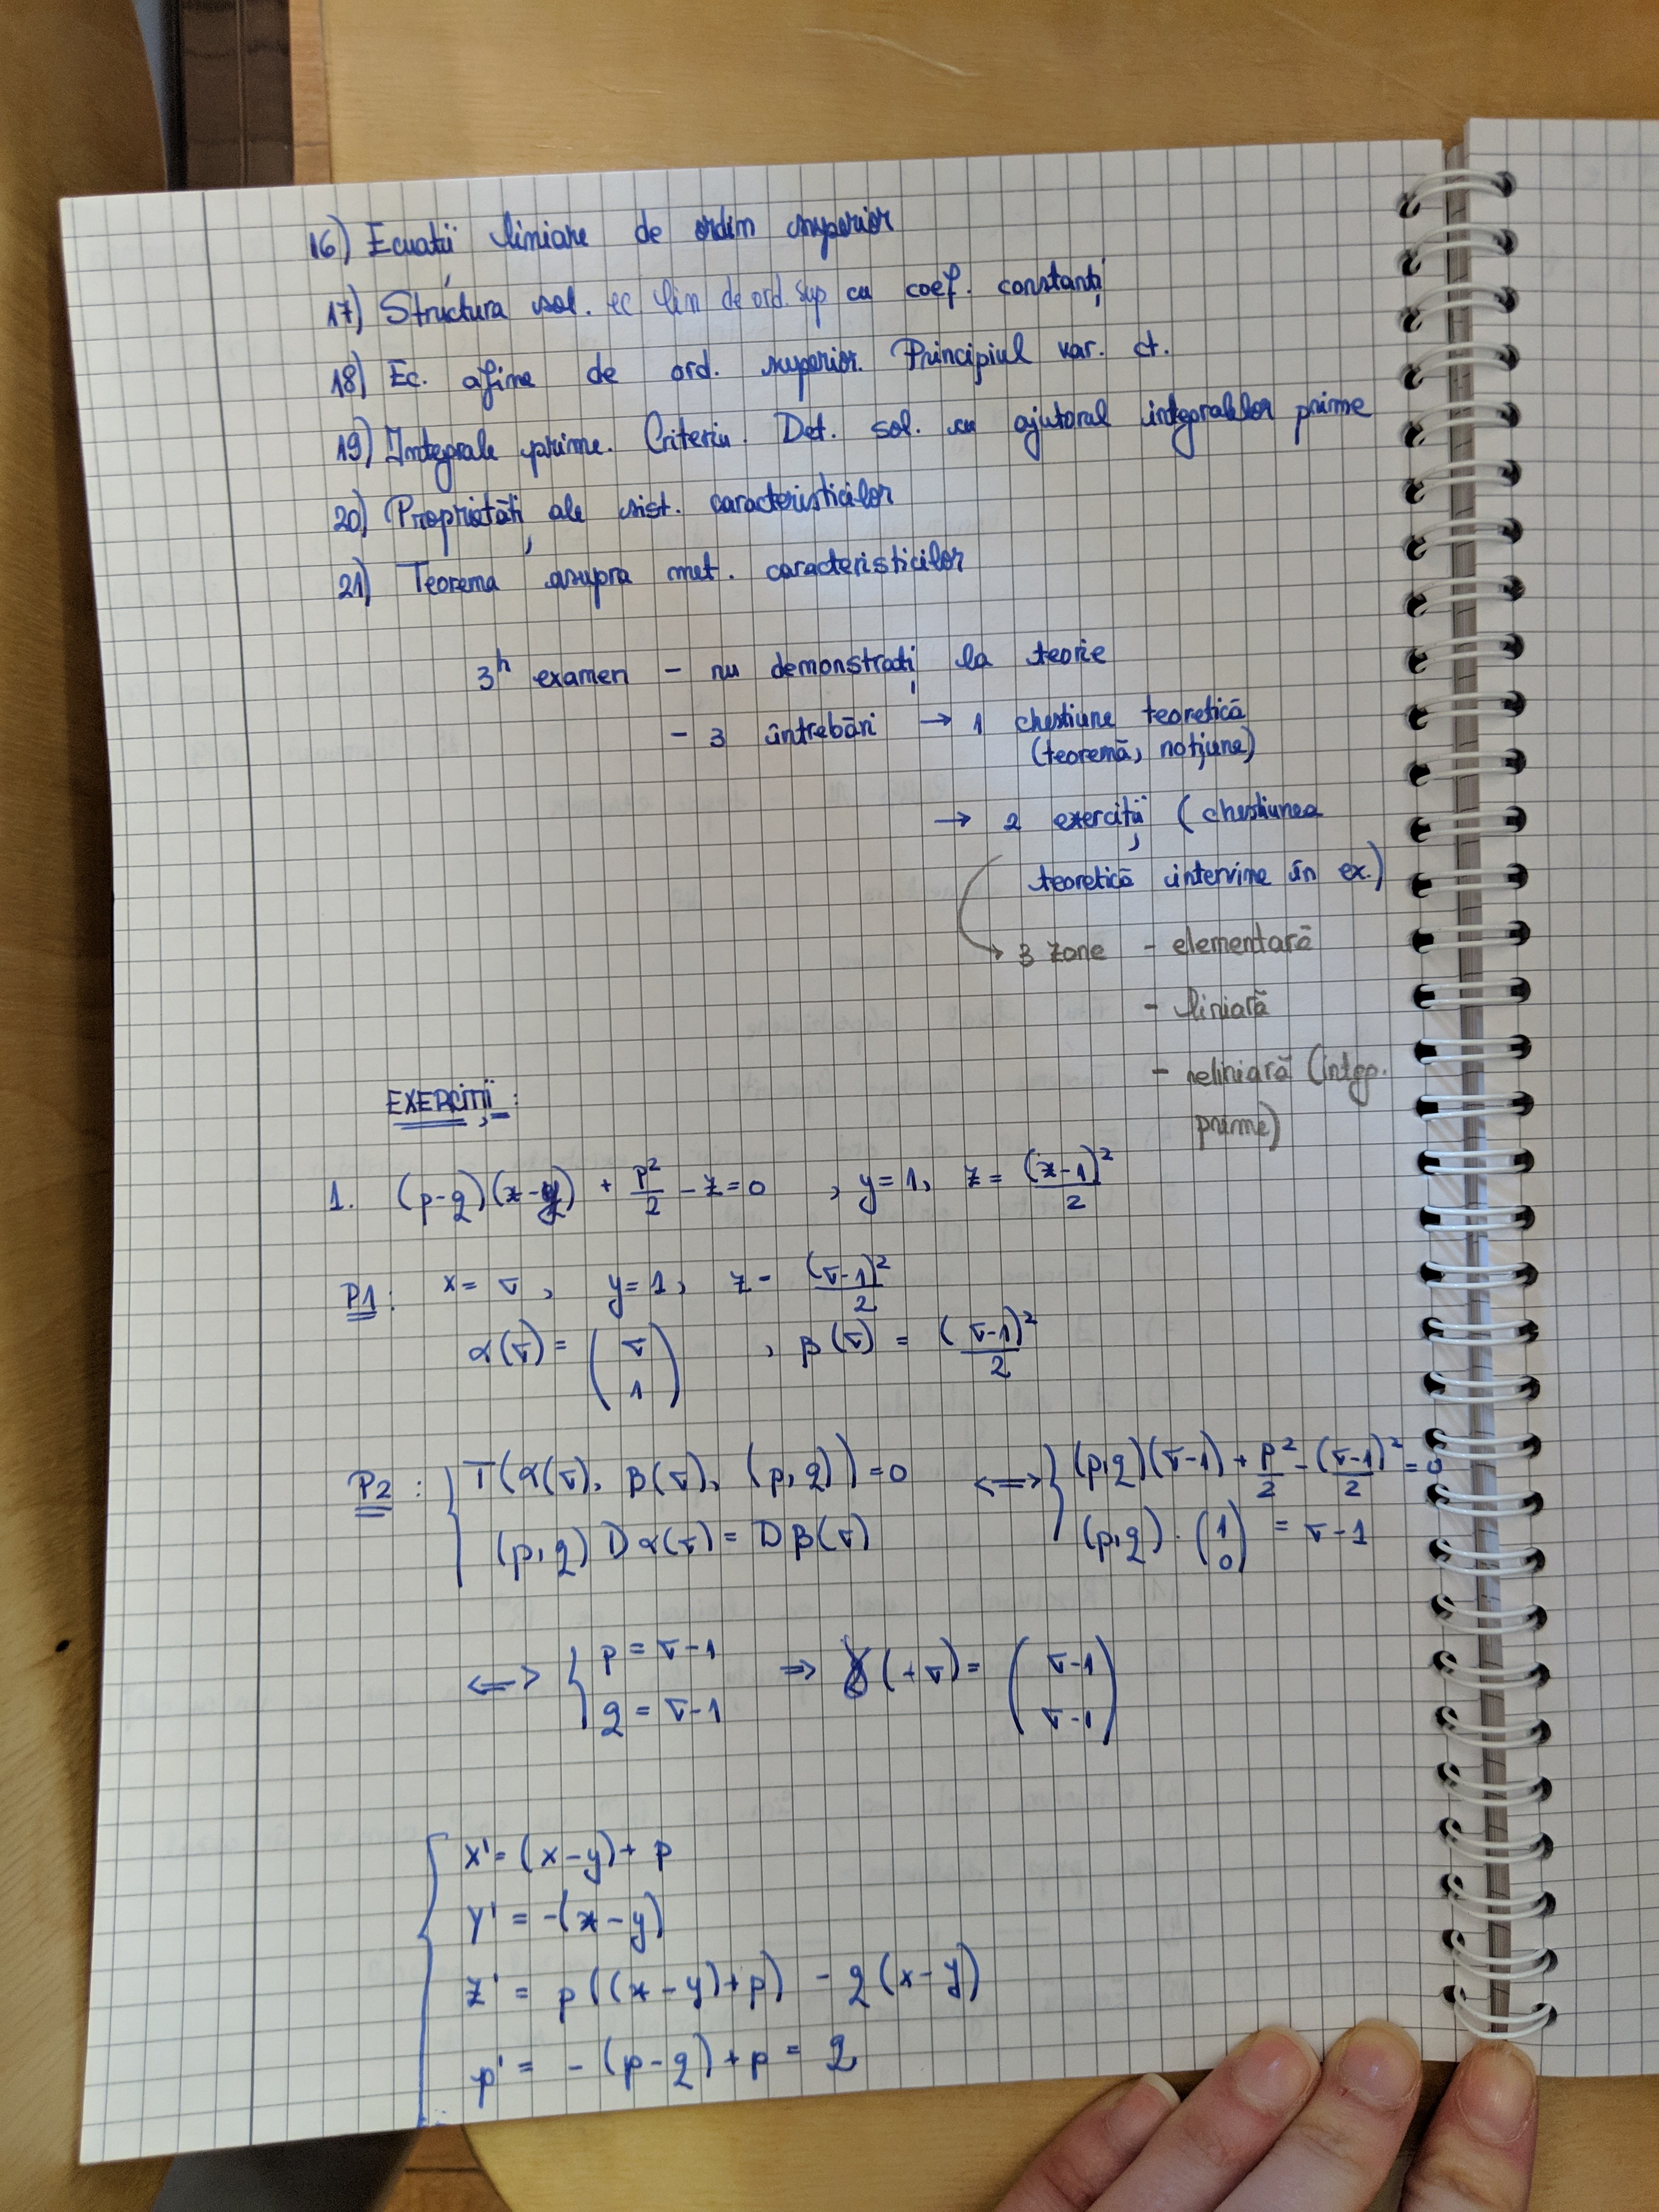 16) Ecuații liniare de ordin superior
17) Structura sol. ec lin de ord. sup cu coef. constanți
18) Ec. afine de ord. superior. Principiul var. ct.
19) Integrale prime. Criteriu. Det. sol. cu ajutorul integralelor prime
20) Proprietăți ale sist. caracteristicilor
21) Teorema asupra met. caracteristicilor
3h examen - nu demonstrați la teorie
- 3 întrebări → 1 chestiune teoretică
(teoremă, noțiune)
→ 2 exerciții (chestiunea
teoretică intervine în ex.)
→ 3 zone - elementară
- liniară
- neliniară (intgp.
prime)
EXERCIȚII:
1. (p-q)(x-y) + p²/2 - z = 0 , y=1, z = (x-1)²/2
P1: x = σ, y=1, z - (σ-1)²/2
α(σ) = (σ 1) , β(σ) = (σ-1)²/2
P2: { T(α(σ), β(σ), (p,q)) = 0 <=> { (p,q)(σ-1) + p²/2 - (σ-1)²/2 = 0
(p,q) Dα(σ) = Dβ(σ) (p,q) · (1 0) = σ-1
<=> { p = σ-1 => γ(+σ) = (σ-1
q = σ-1 σ-1)
{ x' = (x-y) + p
y' = -(x-y)
z' = p((x-y)+p) - q(x-y)
p' = -(p-q) + p = q